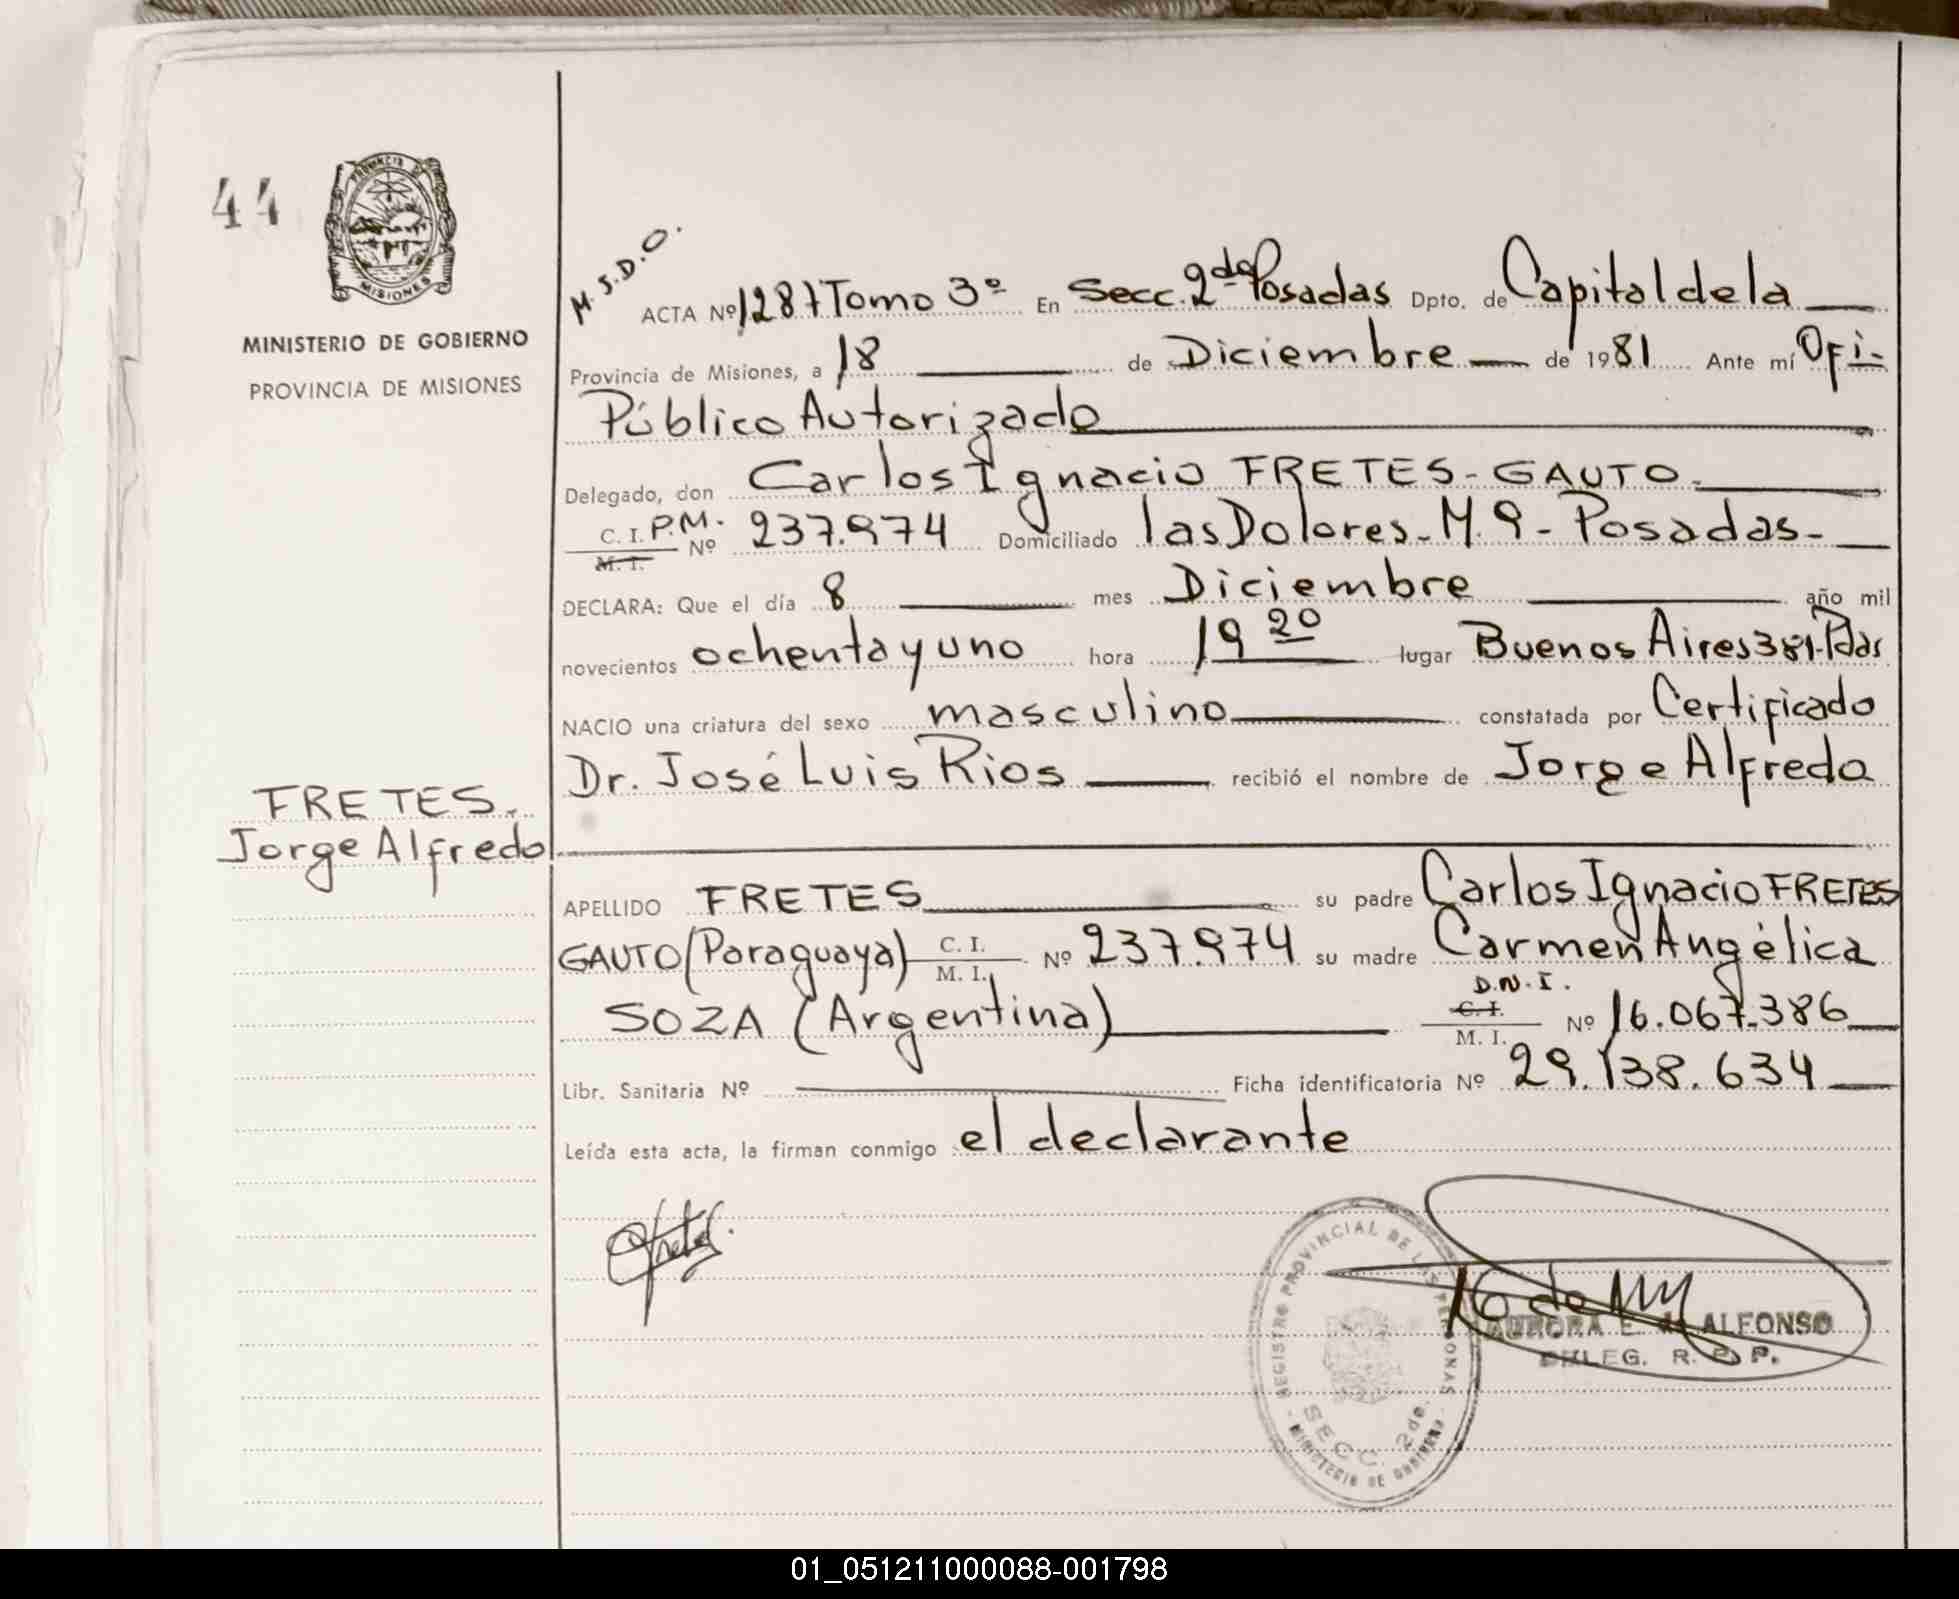 44
PROVINCIA DE
MISIONES
MINISTERIO DE GOBIERNO
PROVINCIA DE MISIONES
M.S.D.O.
ACTA Nº 1287 Tomo 3º En Secc. 2da Posadas Dpto. de Capital de la
Provincia de Misiones, a 18 de Diciembre de 1981 Ante mí Ofi-
Público Autorizado
Delegado, don Carlos Ignacio FRETES-GAUTO.
C. I. P.M. M. I. Nº 237.974 Domiciliado las Dolores-M.9-Posadas-
DECLARA: Que el día 8 mes Diciembre año mil
novecientos ochenta y uno hora 19 20 lugar Buenos Aires 381-Pdas
NACIO una criatura del sexo masculino constatada por Certificado
Dr. José Luis Rios recibió el nombre de Jorge Alfredo
FRETES.
Jorge Alfredo
APELLIDO FRETES su padre Carlos Ignacio FRETES
GAUTO (Paraguaya) C. I. M. I. Nº 237.974 su madre Carmen Angélica
SOZA (Argentina) D.N.I. C. I. M. I. Nº 16.067.386
Libr. Sanitaria Nº Ficha identificatoria Nº 29.138.634
Leída esta acta, la firman conmigo el declarante
REGISTRO PROVINCIAL DE LAS PERSONAS
SECC. 2da.
MINISTERIO DE GOBIERNO
AURORA E. de ALFONSO
DELEG. R. P. P.
01_051211000088-001798